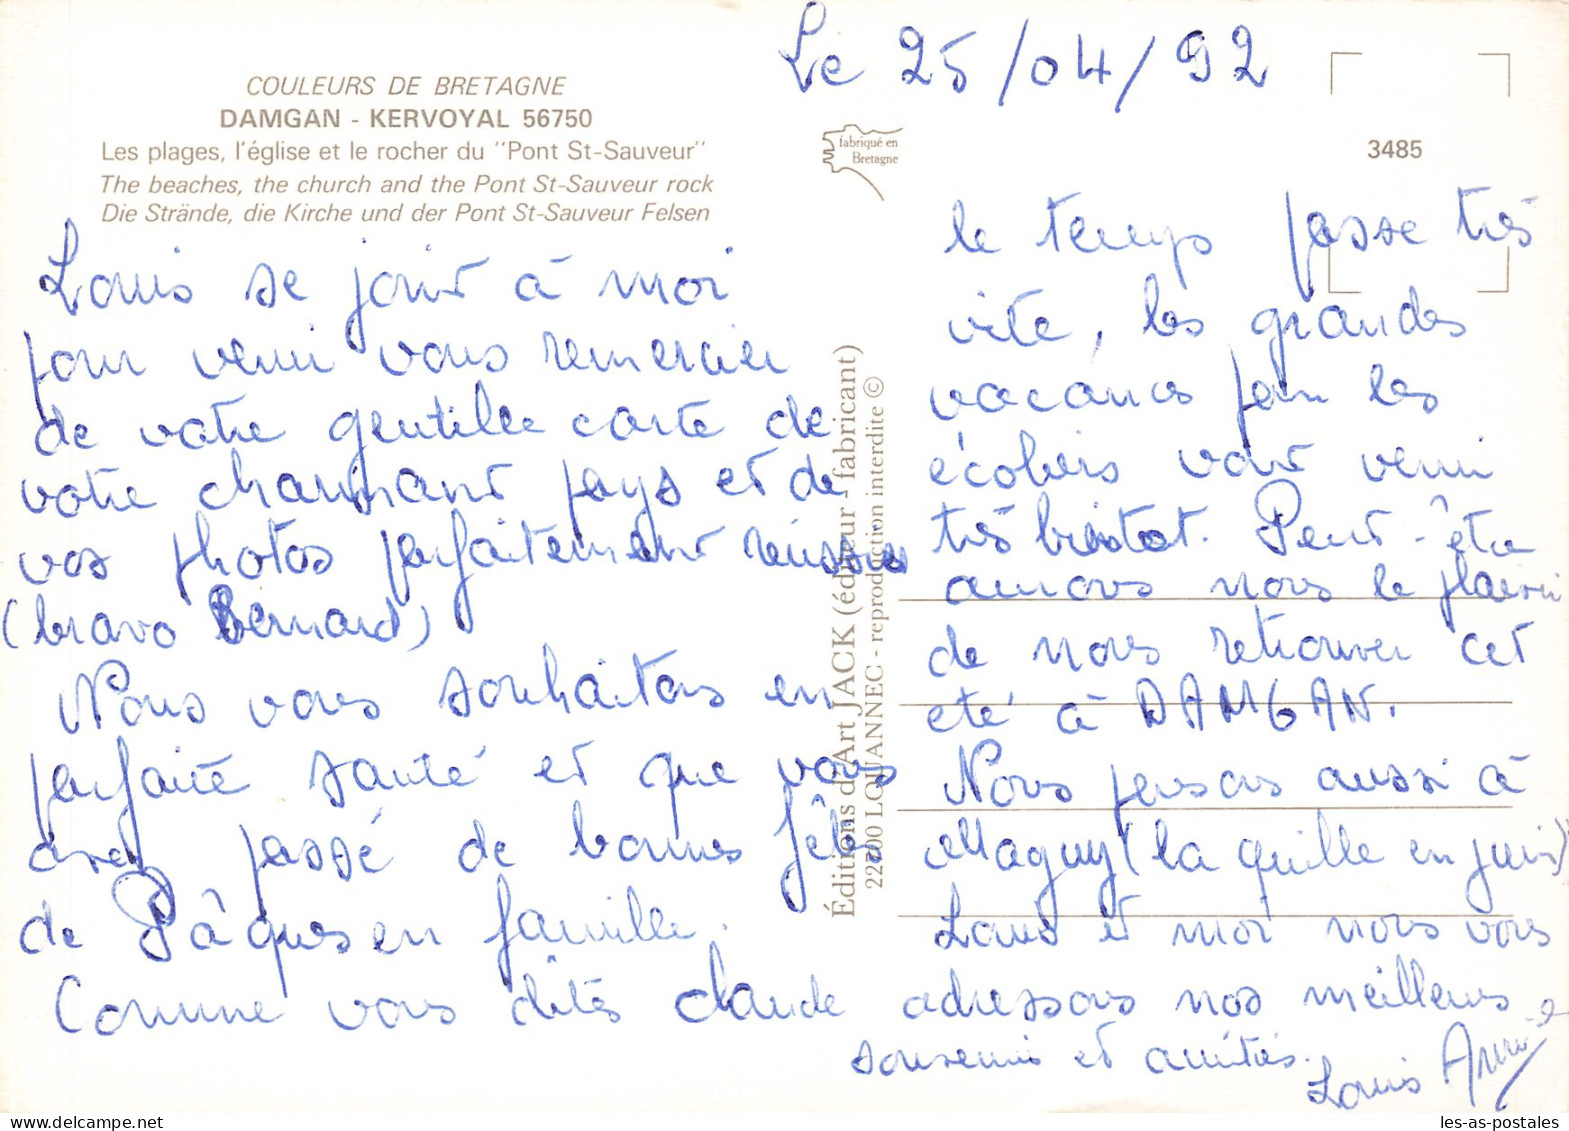 Le 25/04/92
COULEURS DE BRETAGNE
DAMGAN - KERVOYAL 56750
Les plages, l'église et le rocher du "Pont St-Sauveur"
The beaches, the church and the Pont St-Sauveur rock
Die Strände, die Kirche und der Pont St-Sauveur Felsen
fabriqué en
Bretagne
3485
Louis se joint à moi
pour venir vous remercier
de votre gentille carte de
votre charmant pays et de
vos photos parfaitement réussies
(bravo Bernard)
Nous vous souhaitons en
parfaite santé et que vous
avez passé de bonnes fêtes
de Pâques en famille.
Comme vous dîtes Claude
Éditions d'Art JACK (éditeur - fabricant)
22700 LOUANNEC - reproduction interdite ©
le temps passe très
vite, les grandes
vacances pour les
écoliers vont venir
très bientot. Peut-être
aurons nous le plaisir
de nous retrouver cet
été à DAMGAN.
Nous pensons aussi à
Maguy (la quille en juin)
Louis et moi nous vous
adressons nos meilleurs
souvenirs et amitiés.
Louis Annie
les-as-postales